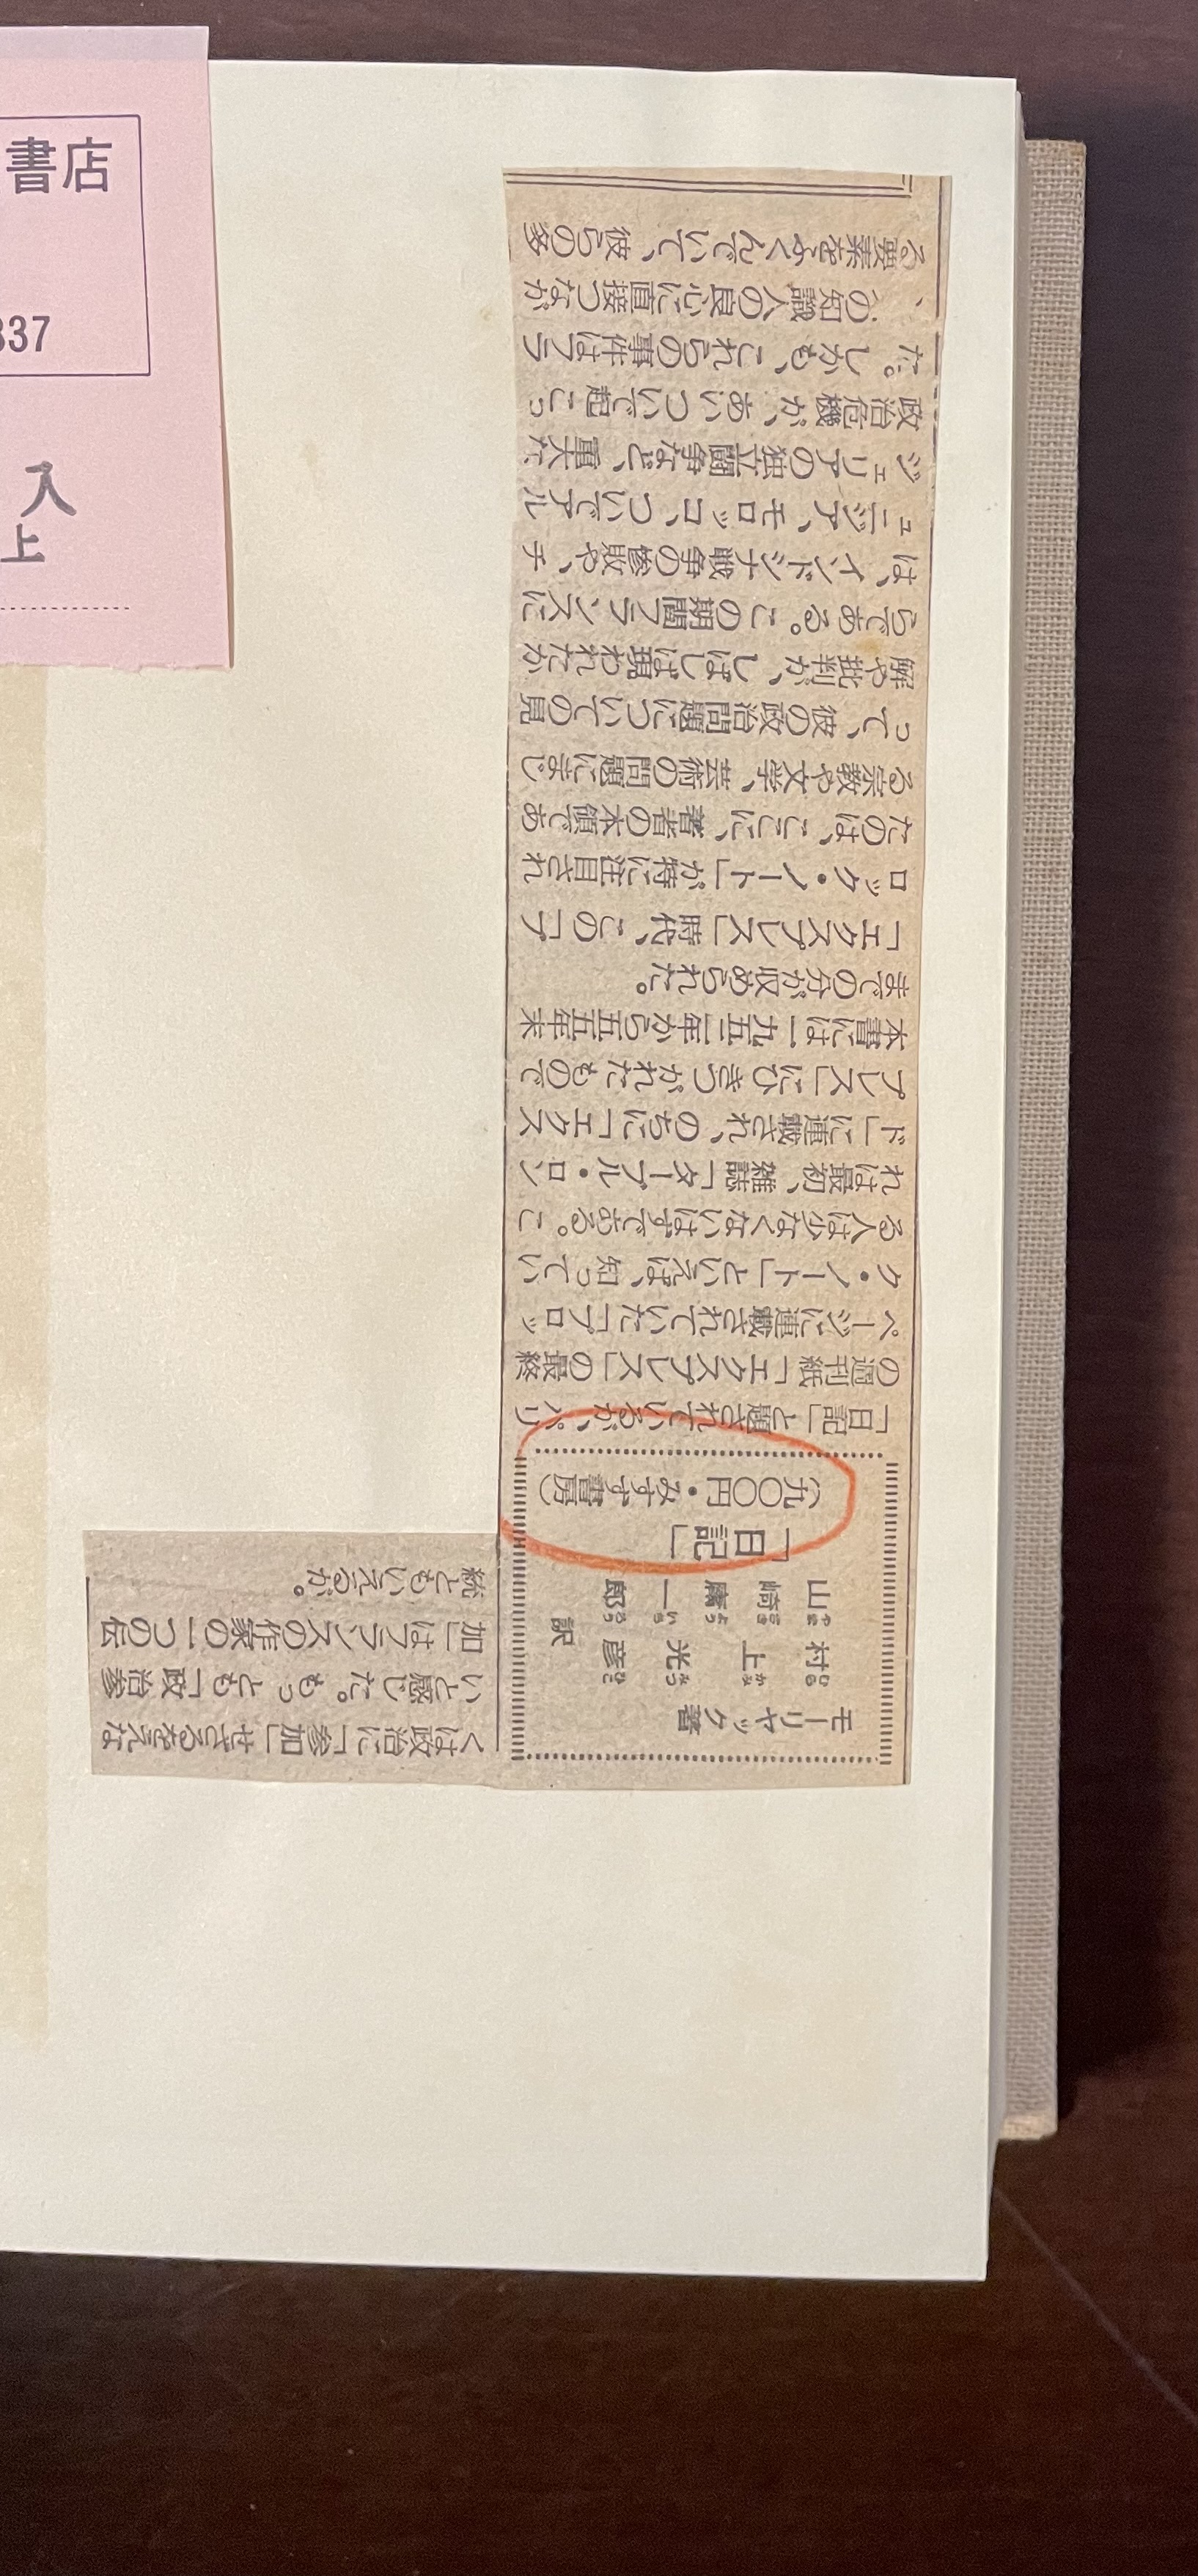 書店
337
入
上
モーリヤック著
村上光彦
むらかみみつひこ
山崎庸一郎
やまざきよういちろう
訳
「日記」
（九〇〇円・みすず書房）
「日記」と題されているが、パリ
の週刊紙「エクスプレス」の最終
ページに連載されていた「ブロッ
ク・ノート」といえば、知ってい
る人は少なくないはずである。こ
れは最初、雑誌「ターブル・ロン
ド」に連載され、のちに「エクス
プレス」にひきつがれたもので
本書には一九五二年から五五年末
までの分が収められた。
「エクスプレス」時代、この「ブ
ロック・ノート」が特に注目され
たのは、ここに、著者の本領であ
る宗教や文学、芸術の問題にまじ
って、彼の政治問題についての見
解や批判が、しばしば現われたか
らである。この期間フランスに
は、インドシナ戦争の惨敗や、チ
ュニジア、モロッコ、ついでアル
ジェリアの独立闘争など、重大な
政治危機が、あいついで起こっ
た。しかも、これらの事件はフラ
の知識人の良心に直接つなが
る要素をふくんでいて、彼らの多
くは政治に「参加」せざるをえな
いと感じた。もっとも「政治参
加」はフランスの作家の一つの伝
統ともいえるが。